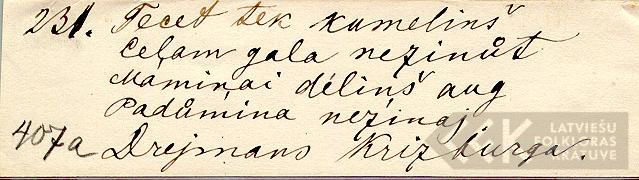 231. Tecet tek kumelinš
Ceļam gala nezinůt
Mamiņai dėlinš aug
Padůmina nezinaj
407a Drejmans Krizburga.
LATVIEŠU
FOLKLORAS
KRĀTUVE